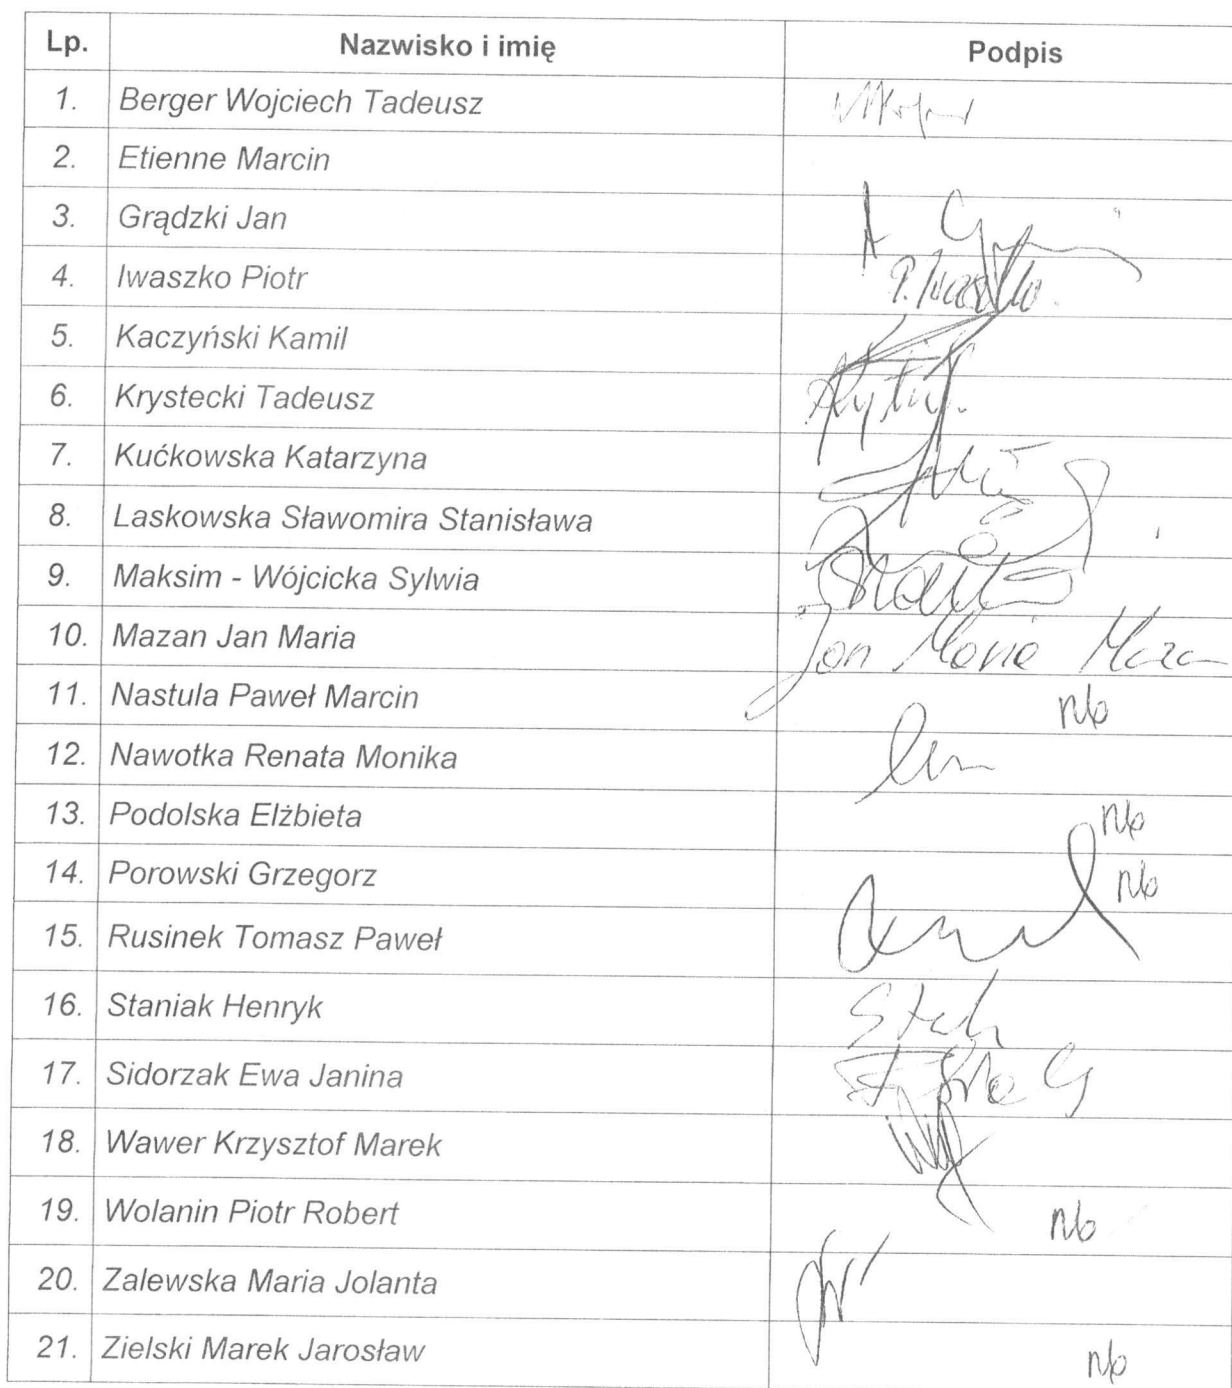 Lp. Nazwisko i imię Podpis
1. Berger Wojciech Tadeusz
2. Etienne Marcin
3. Grądzki Jan
4. Iwaszko Piotr P. Iwaszko.
5. Kaczyński Kamil
6. Krystecki Tadeusz
7. Kućkowska Katarzyna
8. Laskowska Sławomira Stanisława
9. Maksim - Wójcicka Sylwia
10. Mazan Jan Maria Jan Maria Maza
11. Nastula Paweł Marcin nb
12. Nawotka Renata Monika
13. Podolska Elżbieta nb
14. Porowski Grzegorz nb
15. Rusinek Tomasz Paweł
16. Staniak Henryk
17. Sidorzak Ewa Janina
18. Wawer Krzysztof Marek
19. Wolanin Piotr Robert nb
20. Zalewska Maria Jolanta
21. Zielski Marek Jarosław nb